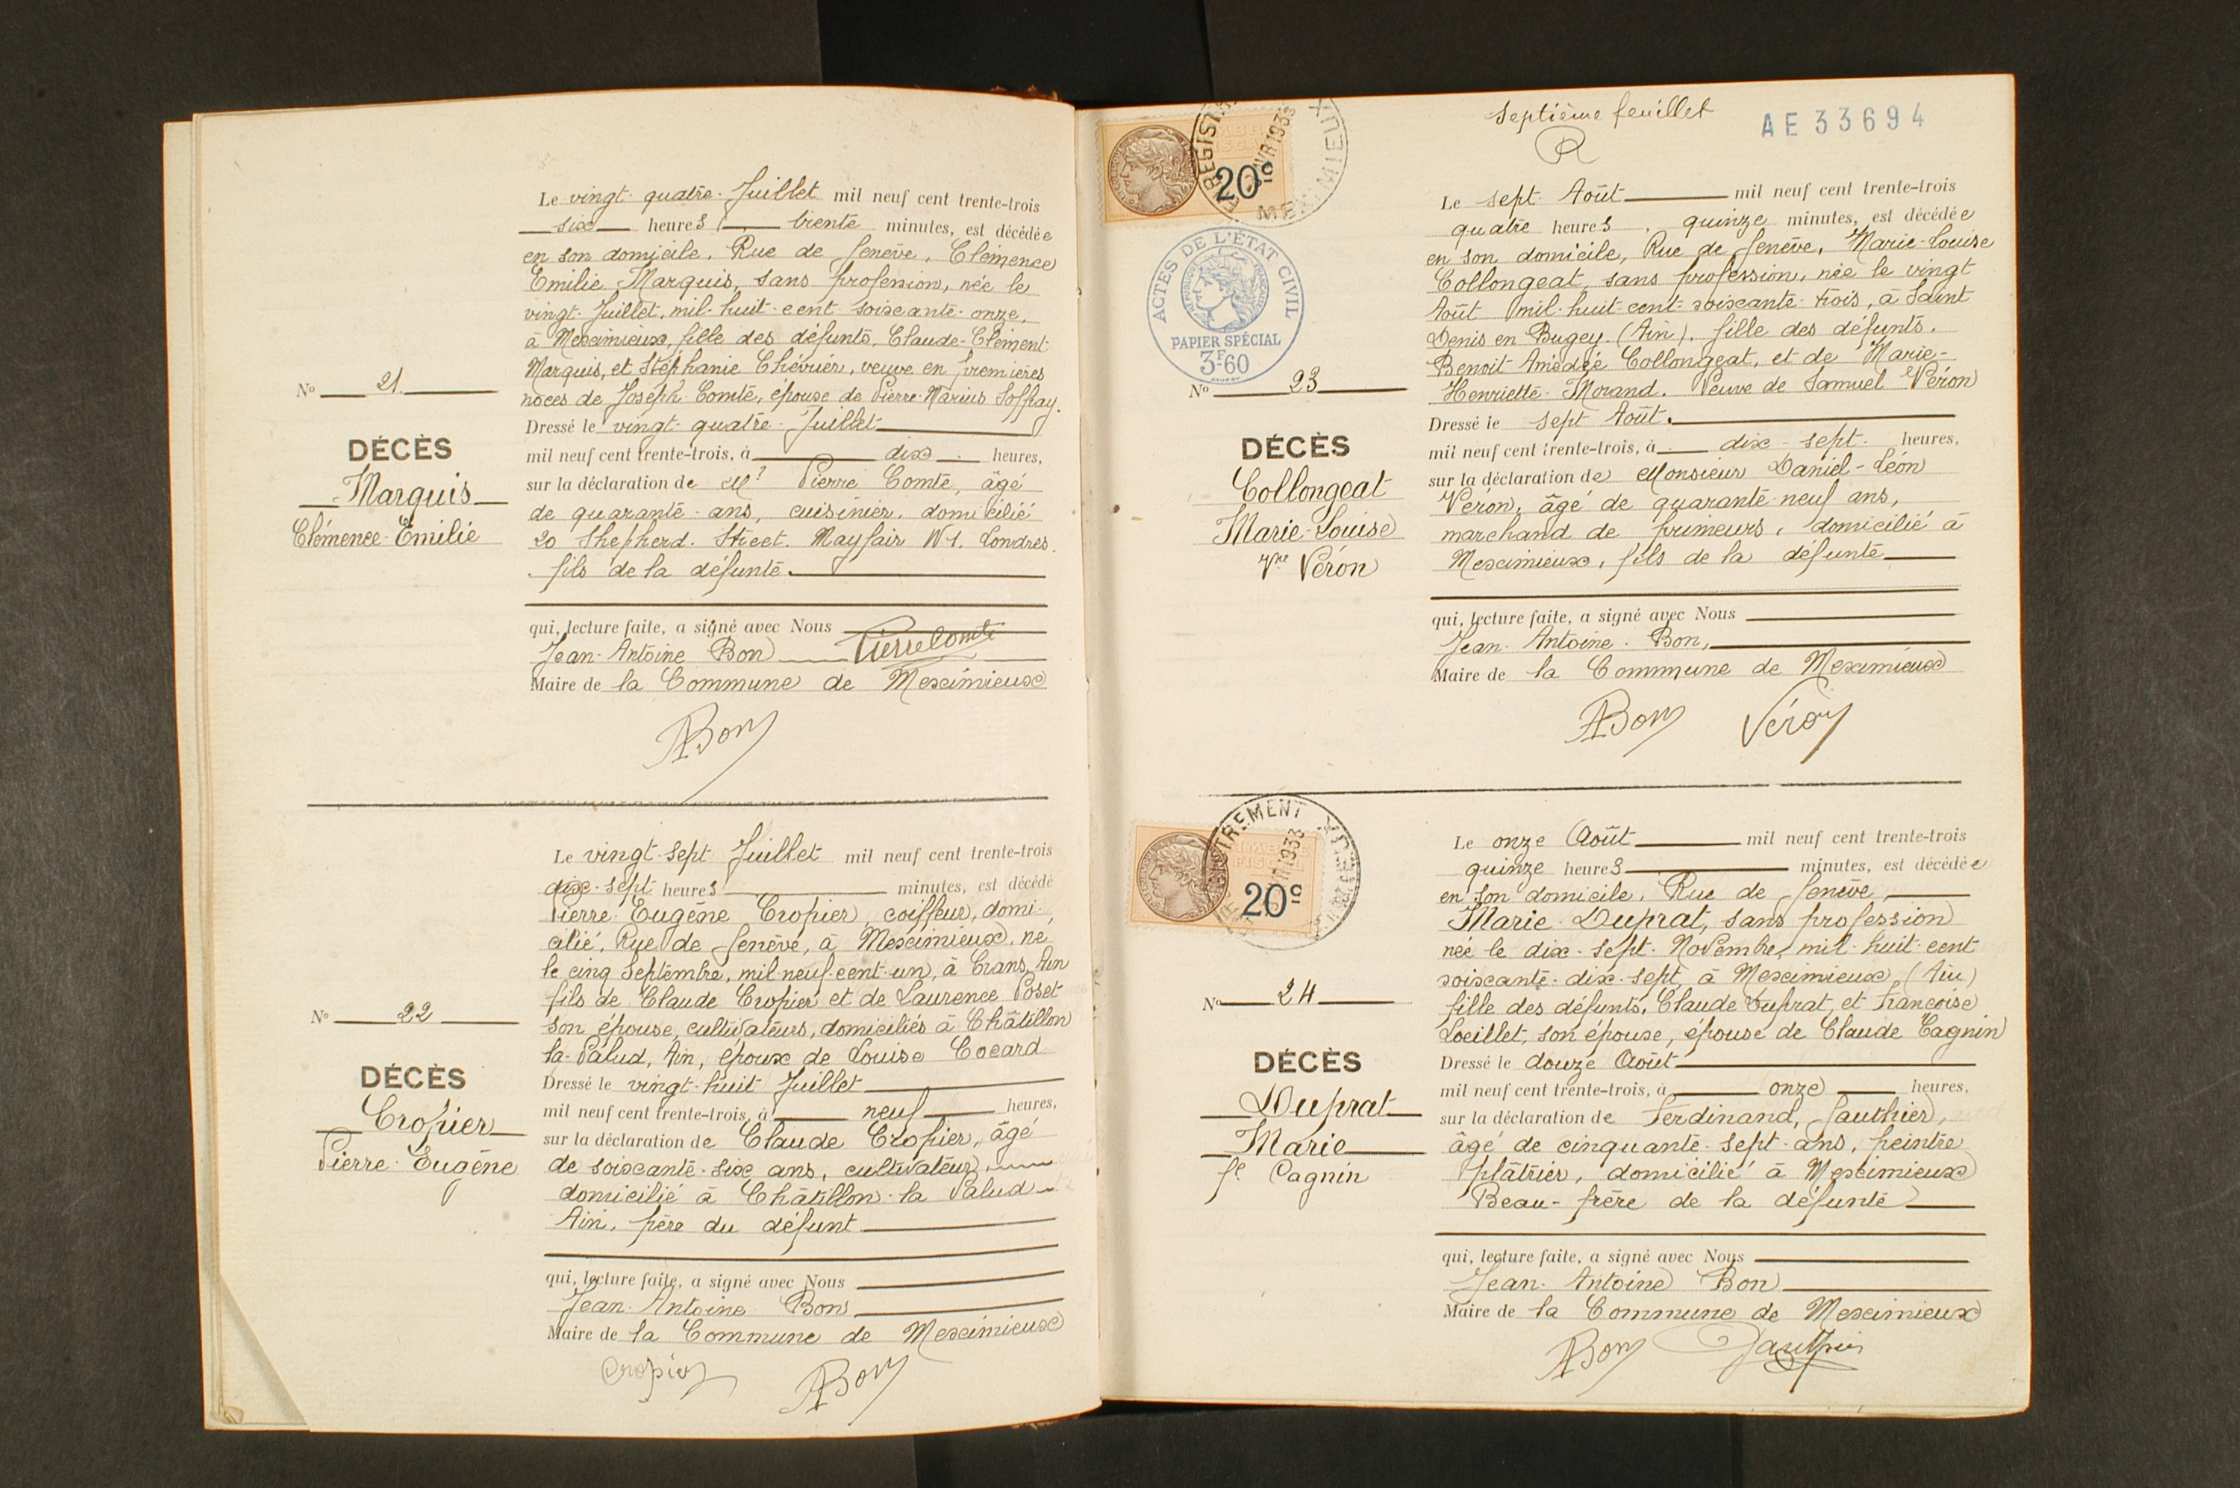 Le vingt-quatre Juillet mil neuf cent trente-trois
six heures, trente minutes, est décédée
en son domicile, Rue de Genève, Clémence
Emilie Marquis, sans profession, née le
vingt Juillet, mil-huit-cent soixante-onze,
à Meximieux, fille des défunts, Claude-Clément
Marquis, et Stéphanie Chévrier, veuve en premières
noces de Joseph Comte, épouse de Pierre-Marius Soffray.
Dressé le vingt-quatre Juillet
mil neuf cent trente-trois, à dix heures,
sur la déclaration de Mr Pierre Comte, âgé
de quarante ans, cuisinier, domicilié
20 Shepherd Street. Mayfair W1. Londres.
fils de la défunte.
qui, lecture faite, a signé avec Nous
Jean-Antoine Bon Pierre Comte
Maire de la Commune de Meximieux
ABon
No 21
DÉCÈS
Marquis
Clémence-Emilie
Le vingt-sept Juillet mil neuf cent trente-trois
dix-sept heures minutes, est décédé
Pierre-Eugène Cropier, coiffeur, domi-
cilié, Rue de Genève, à Meximieux, né
le cinq Septembre, mil-neuf-cent-un, à Crans, Ain
fils de Claude Cropier et de Laurence Poset
son épouse, cultivateurs, domiciliés à Châtillon
la-Palud, Ain, époux de Louise Cocard
Dressé le vingt-huit Juillet
mil neuf cent trente-trois, à neuf heures,
sur la déclaration de Claude Cropier, âgé
de soixante-six ans, cultivateur,
domicilié à Châtillon-la Palud
Ain, père du défunt
qui, lecture faite, a signé avec Nous
Jean-Antoine Bon
Maire de la Commune de Meximieux
Cropier ABon
No 22
DÉCÈS
Cropier
Pierre-Eugène
septième feuillet
AE 33694
20c
ACTES DE L'ÉTAT CIVIL
PAPIER SPÉCIAL
3F60
Le sept Août mil neuf cent trente-trois
quatre heures, quinze minutes, est décédée
en son domicile, Rue de Genève, Marie-Louise
Collongeat, sans profession, née le vingt
Août mil-huit-cent-soixante-trois, à Saint
Denis en Bugey (Ain), fille des défunts,
Benoit Amédée Collongeat, et de Marie-
Henriette Morand. Veuve de Samuel Véron
Dressé le sept Août.
mil neuf cent trente-trois, à dix-sept heures,
sur la déclaration de Monsieur Daniel-Léon
Véron, âgé de quarante-neuf ans,
marchand de primeurs, domicilié à
Meximieux, fils de la défunte
qui, lecture faite, a signé avec Nous
Jean-Antoine Bon,
Maire de la Commune de Meximieux
ABon Véron
No 23
DÉCÈS
Collongeat
Marie-Louise
Vve Véron
20c
Le onze Août mil neuf cent trente-trois
quinze heures minutes, est décédée
en son domicile, Rue de Genève,
Marie Duprat, sans profession
née le dix-sept Novembre, mil-huit-cent
soixante-dix-sept, à Meximieux (Ain)
fille des défunts, Claude Duprat, et Françoise
Loeillet, son épouse, épouse de Claude Cagnin
Dressé le douze Août
mil neuf cent trente-trois, à onze heures,
sur la déclaration de Ferdinand, Gauthier,
âgé de cinquante-sept-ans, peintre
plâtrier, domicilié à Meximieux
Beau-frère de la défunte
qui, lecture faite, a signé avec Nous
Jean-Antoine Bon
Maire de la Commune de Meximieux
ABon Gauthier
No 24
DÉCÈS
Duprat
Marie
fe Cagnin